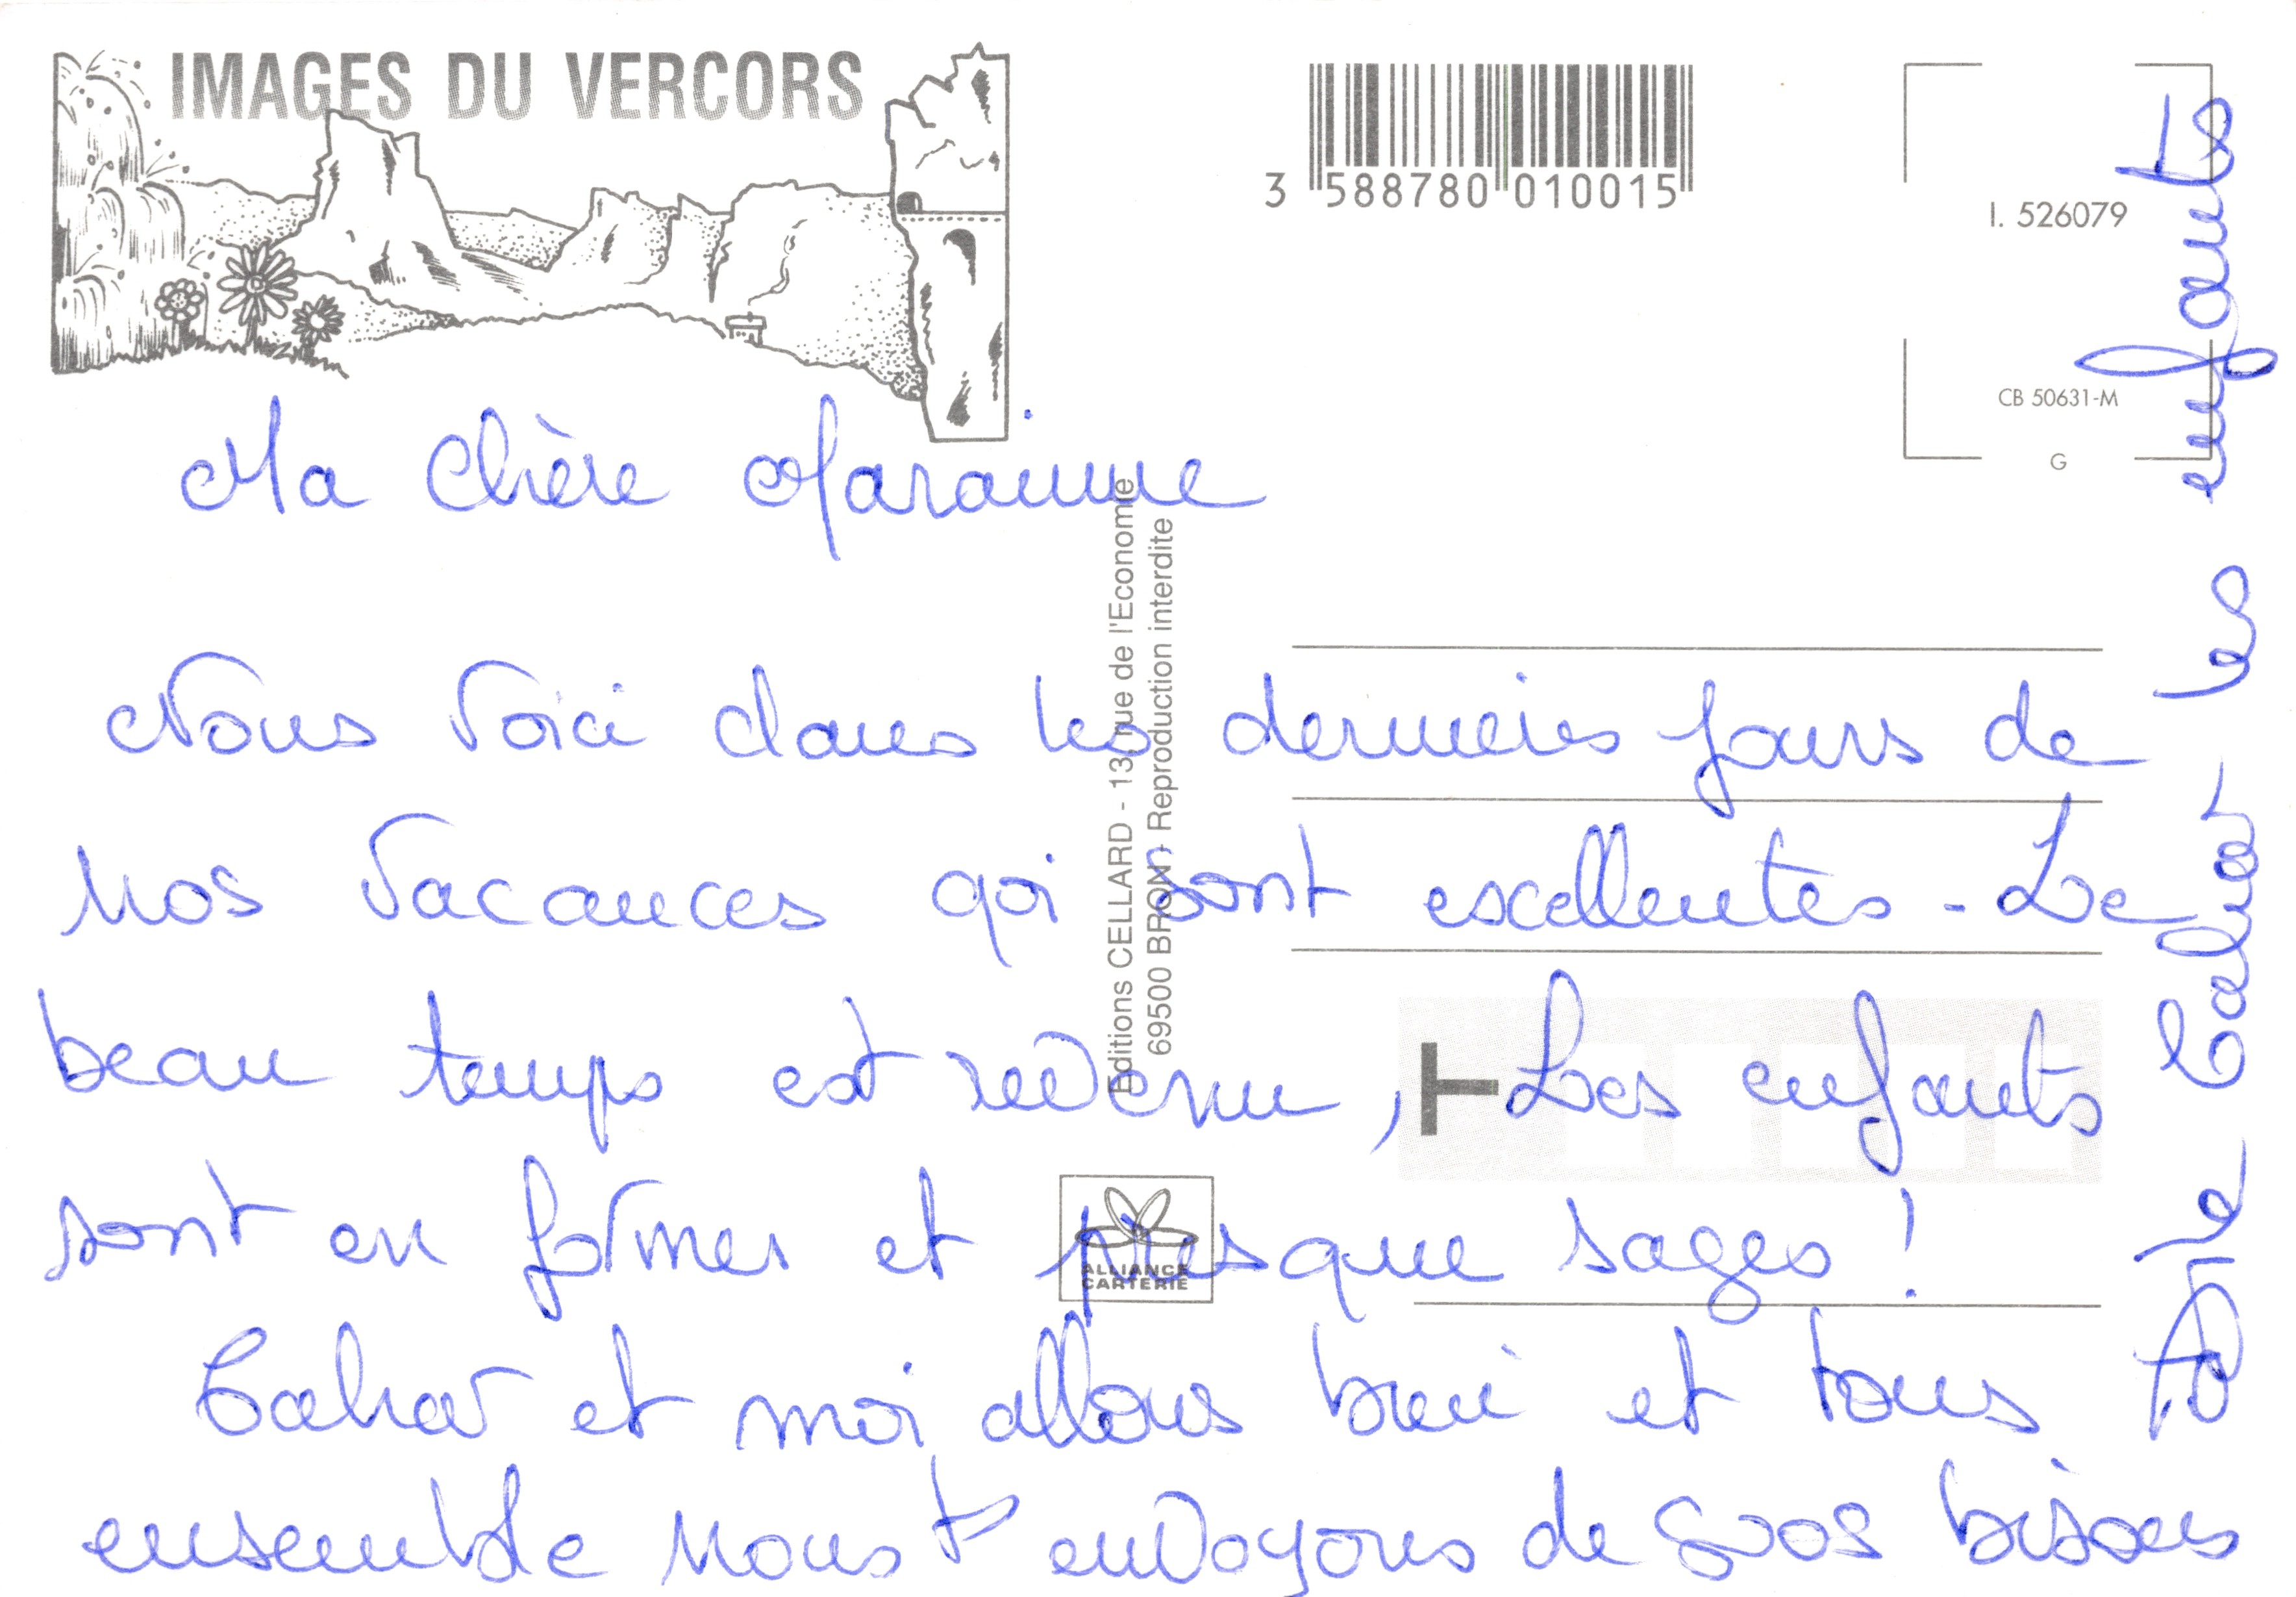 IMAGES DU VERCORS
3 588780 010015
I. 526079
CB 50631-M
G
Ma Chère Marainne
Nous voici dans les derniers jours de
nos vacances qui sont excellentes - Le
beau temps est revenu, Les enfants
sont en formes et presque sages !
et moi allons bien et tous
ensemble nous t'envoyons de gros bisous
enfants
Editions CELLARD - 13, rue de l'Economie
69500 BRON - Reproduction interdite
ALLIANCE
CARTERIE